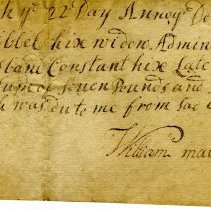 h yᵉ 22 Day Annoyᵉ De
bbel hix widow Admin
sband Constant hix Late
um of seven Pounds and
h was du to me from sac
William ma